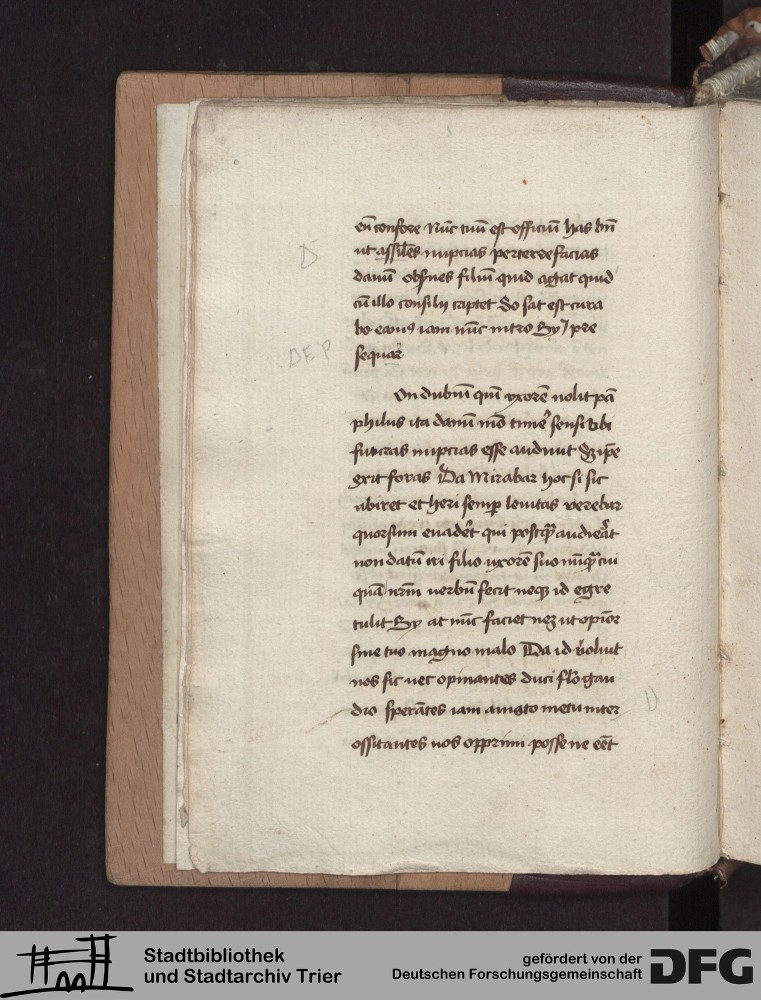 eñ confore Nūc tuū est officiū has bñ
ut assiles nupcias perterrefacias
dauū obsues filiū quid agat quid
cū illo consilij captet So sat est cura
bo eamus iam nūc intro Sy J pre
sequar
D
BEP
On dubiū quī uxorē nolit pā
philus ita dauū mō timē sensi ubi
futuras nupcias esse audiuit Sz ipē
exit foras Da Mirabar hoc si sic
abiret et heri semp lenitas verebar
quorsum euadēt qui postq̄ audierāt
non datū iri filio uxorē suo nūq̄ cui
quā nrm̄ uerbū fecit neq id egre
tulit Sy at nūc faciet nez ut opinor
sine tuo magno malo Da id uoluit
nos sic nec opinantes duci flō gau
dio sperātes iam amoto metu inter
ossitantes nos opprimi posse ne eēt
D
Stadtbibliothek
und Stadtarchiv Trier
gefördert von der
Deutschen Forschungsgemeinschaft
DFG